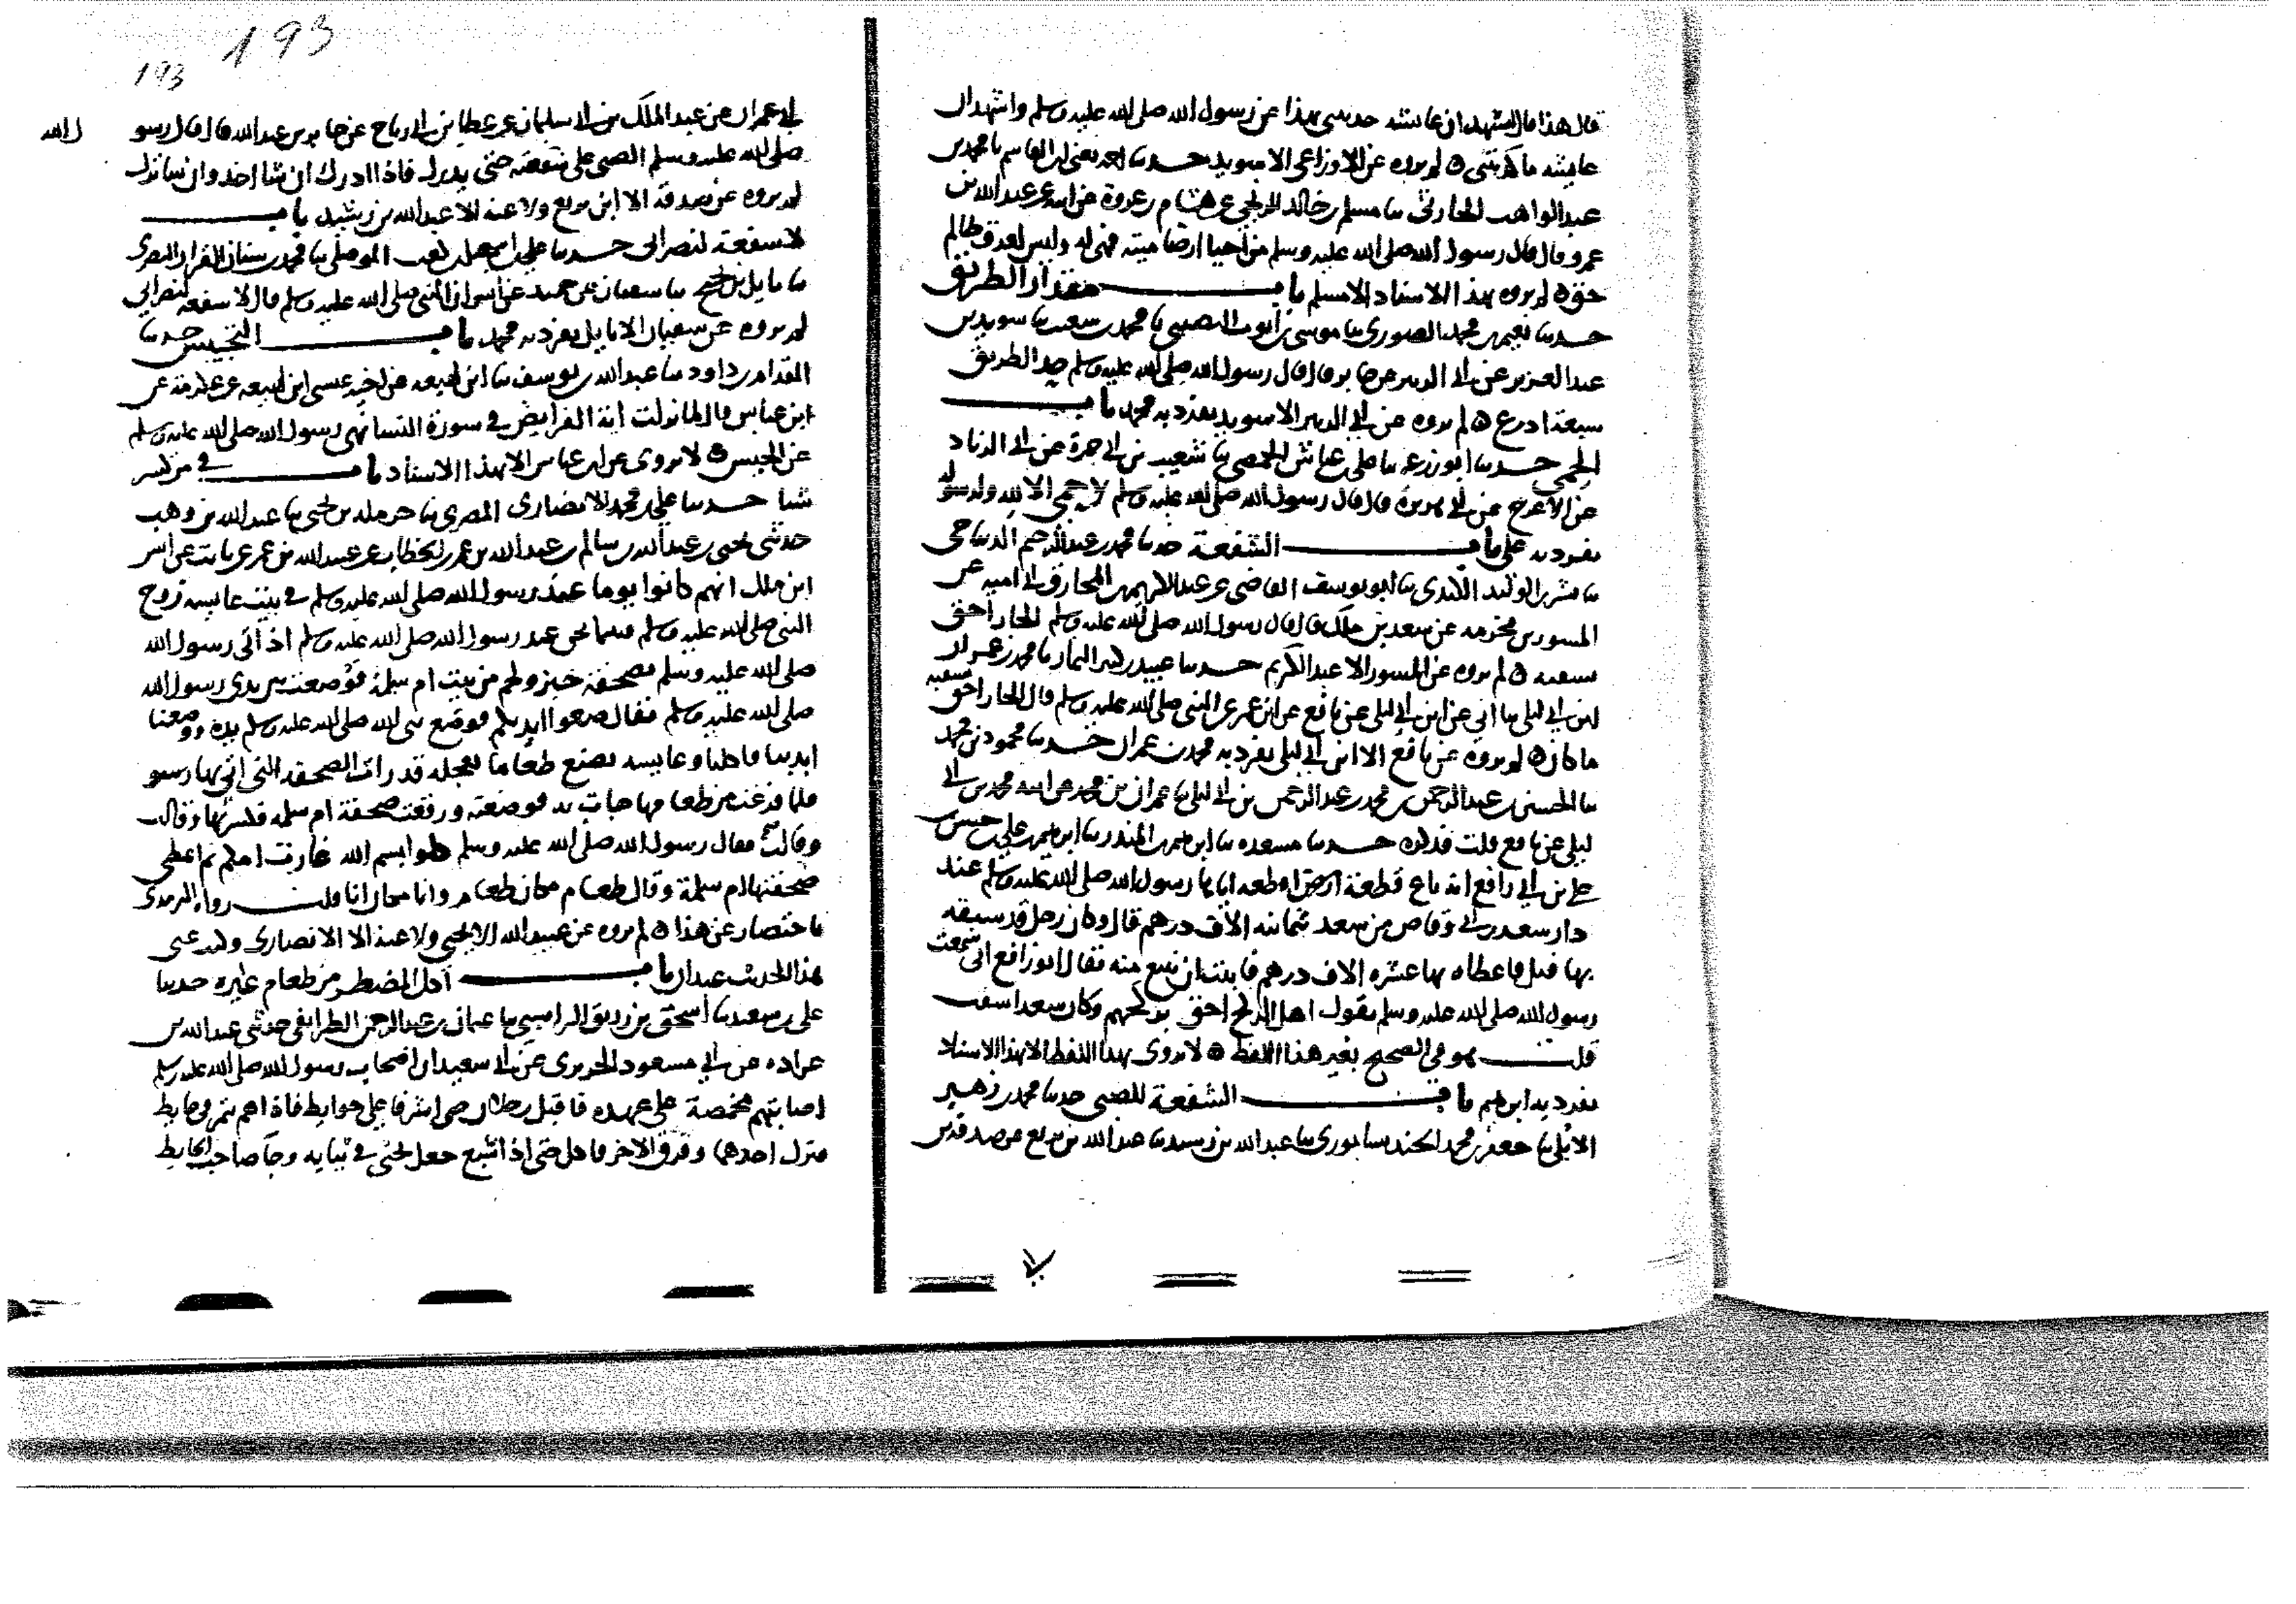 قال هذا قال اشهد ان عائشة حدثتني بهذا عن رسول الله صلى الله عليه وسلم واشهد ان
عايشه ما كذبتني لم يروه عن الاوزاعي الا سويد حدثنا احمد يعني ابن القاسم نا محمد بن
عبد الواهب الحارثي نا مسلم بن خالد الزنجي عن هشام بن عروة عن ابيه عن عبد الله بن
عمرو قال قال رسول الله صلى الله عليه وسلم من احيا ارضا ميتة فهي له وليس لعرق ظالم
حق لم يروه بهذا الاسناد الا مسلم باب مقدار الطريق
حدثنا نعيم بن محمد الصوري نا موسى بن ايوب النصيبي نا محمد بن سعيد نا سويد بن
عبد العزيز عن ابي الزبير عن جابر قال قال رسول الله صلى الله عليه وسلم حد الطريق
سبعة ادرع لم يروه عن ابي الزبير الا سويد تفرد به محمد باب
الحمى حدثنا ابو زرعة نا علي بن عياش الحمصي نا شعيب بن ابي حمزة عن ابي الزناد
عن الاعرج عن ابي هريرة قال قال رسول الله صلى الله عليه وسلم لا حمى الا لله ولرسوله
تفرد به علي باب الشفعة حدثنا محمد بن عبد الرحيم الديباجي
نا بشر بن الوليد الكندي نا ابو يوسف القاضي عن عبد الكريم بن ابي المخارق ابي امية عن
المسور بن مخرمة عن سعد بن ملك قال قال رسول الله صلى الله عليه وسلم الجار احق
بسقبه لم يروه عن المسور الا عبد الكريم حدثنا عبيد بن كثير التمار نا محمد بن عمران
ابن ابي ليلى نا ابي عن ابن ابي ليلى عن نافع عن ابن عمر عن النبي صلى الله عليه وسلم قال الجار احق بسقبه
ما كان لم يروه عن نافع الا ابن ابي ليلى تفرد به محمد بن عمران حدثنا محمود بن محمد
نا الحسين بن عبد الرحمن بن محمد بن عبد الرحمن بن ابي ليلى نا عمران بن محمد عن ابيه محمد بن ابي
ليلى عن نافع قلت فذكره حدثنا مسعدة نا ابرهيم بن المنذر نا ابرهيم بن علي بن حسن
بن علي بن ابي رافع انه باع قطعة ارض اقطعه اياها رسول الله صلى الله عليه وسلم عند
دار سعد بن ابي وقاص من سعد بثمانية الاف درهم قال وكان رجل قد سبقه
بها قبل فاعطاه بها عشرة الاف درهم فابيت ان تبيع منه فقال ابو رافع اني سمعت
رسول الله صلى الله عليه وسلم يقول اهل الربع احق بربعهم وكان سعد اسقب
قلت هو في الصحيح بغير هذا اللفظ لا يروى بهذا اللفظ الا بهذا الاسناد
تفرد به ابرهيم باب الشفعة للصبي حدثنا محمد بن زهير
الابلي نا جعفر بن محمد الجنديسابوري نا عبد الله بن رشيد نا عبد الله بن بزيع عن صدقة بن
193
193
ابي عمران عن عبد الملك بن ابي سليمان عن عطا بن ابي رباح عن جابر بن عبد الله قال قال رسو ل الله
صلى الله عليه وسلم الصبي على شفعته حتى يدرك فاذا ادرك ان شا اخذ وان شا ترك
لم يروه عن صدقة الا ابن بزيع ولا عنه الا عبد الله بن رشيد باب
لا شفعة لنصراني حدثنا علي بن اسمعيل بن كعب الموصلي نا محمد بن سنان القزاز البصري
نا نايل بن نجيح نا سفيان عن حميد عن انس ان النبي صلى الله عليه وسلم قال لا شفعة لنصراني
لم يروه عن سفيان الا نايل تفرد به محمد باب التحبيس حدثنا
المقدام بن داود نا عبد الله بن يوسف نا ابن لهيعة عن اخيه عيسى ابن لهيعة عن عكرمة عن
ابن عباس قال لما نزلت اية الفرايض في سورة النسا نهى رسول الله صلى الله عليه وسلم
عن الحبس لا يروى عن ابن عباس الا بهذا الاسناد باب في من كسر
شيا حدثنا علي بن محمد الانصاري المصري نا حرملة بن يحيى نا عبد الله بن وهب
حدثني يحيى بن عبد الله بن سالم بن عبد الله بن عمر بن الخطاب عن عبيد الله بن عمر عن ثابت عن انس
ابن ملك انهم كانوا يوما عند رسول الله صلى الله عليه وسلم في بيت عايشة زوج
النبي صلى الله عليه وسلم فبينما نحن عند رسول الله صلى الله عليه وسلم اذ اتي رسول الله
صلى الله عليه وسلم بصحفة خبز ولحم من بيت ام سلمة فوضعت بين يدي رسول الله
صلى الله عليه وسلم فقال ضعوا ايديكم فوضع نبي الله صلى الله عليه وسلم يده ووضعنا
ايدينا فاكلنا وعايشة تصنع طعاما بعجلة قد رات الصحفة التي اتي بها رسو
فلما فرغت من طعامها جات به فوضعته ورفعت صحفة ام سلمة فكسرتها وقالت
وقالت فقال رسول الله صلى الله عليه وسلم كلوا بسم الله غارت امكم ثم اعطى
صحفتها ام سلمة وقال طعام مكان طعام وانا مكان انا قلت رواه الترمذي
باختصار عن هذا لم يروه عن عبيد الله الا يحيى ولا عنه الا الانصاري وكد عنى
بهذا الحديث عبدان باب اكل المضطر من طعام غيره حدثنا
علي بن سعيد نا اسحق بن زريق الراسبي نا عثمان بن عبد الرحمن الطرايفي حدثني عبد الله بن
عرادة عن ابي مسعود الجريري عن ابي سعيد ان اصحاب رسول الله صلى الله عليه وسلم
اصابتهم مخمصة على عهده فاقبل رجلان حتى اشرفا على حوايط فاذا هم بتمر في حايط
فنزل احدهما وفرق الاخر فاكل حتى اذا شبع جعل يحثي في ثيابه وجا صاحب الحايط